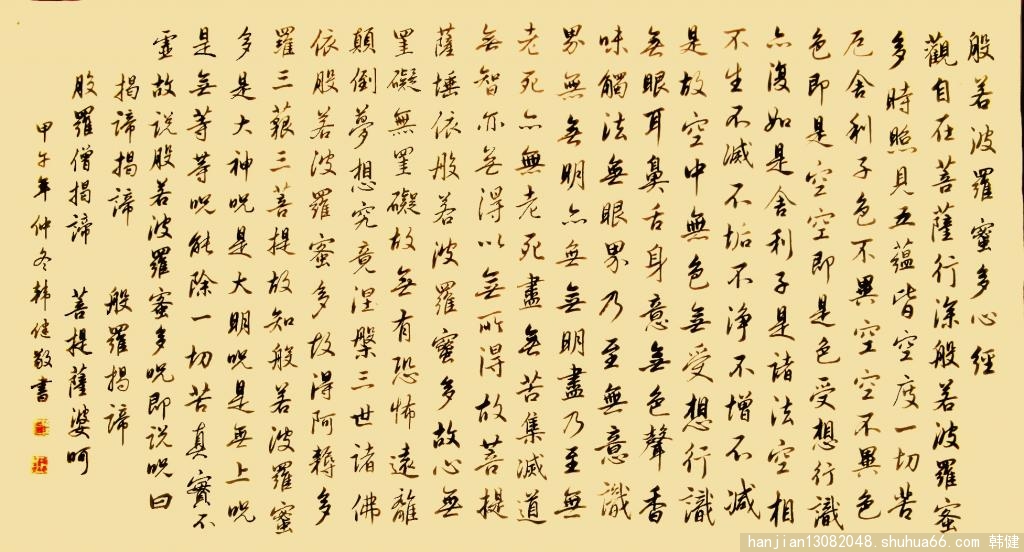 般若波羅蜜多心經
觀自在菩薩行深般若波羅蜜
多時照見五蘊皆空度一切苦
厄舍利子色不異空空不異色
色即是空空即是色受想行識
亦復如是舍利子是諸法空相
不生不滅不垢不淨不增不減
是故空中無色無受想行識
無眼耳鼻舌身意無色聲香
味觸法無眼界乃至無意識
界無無明亦無無明盡乃至無
老死亦無老死盡無苦集滅道
無智亦無得以無所得故菩提
薩埵依般若波羅蜜多故心無
罣礙無罣礙故無有恐怖遠離
顛倒夢想究竟涅槃三世諸佛
依般若波羅蜜多故得阿耨多
羅三藐三菩提故知般若波羅蜜
多是大神呪是大明呪是無上呪
是無等等呪能除一切苦真實不
虛故說般若波羅蜜多呪即說呪曰
揭諦揭諦 般羅揭諦
般羅僧揭諦 菩提薩婆呵
甲午年仲冬韓健敬書
hanjian13082048.shuhua66.com 韩健